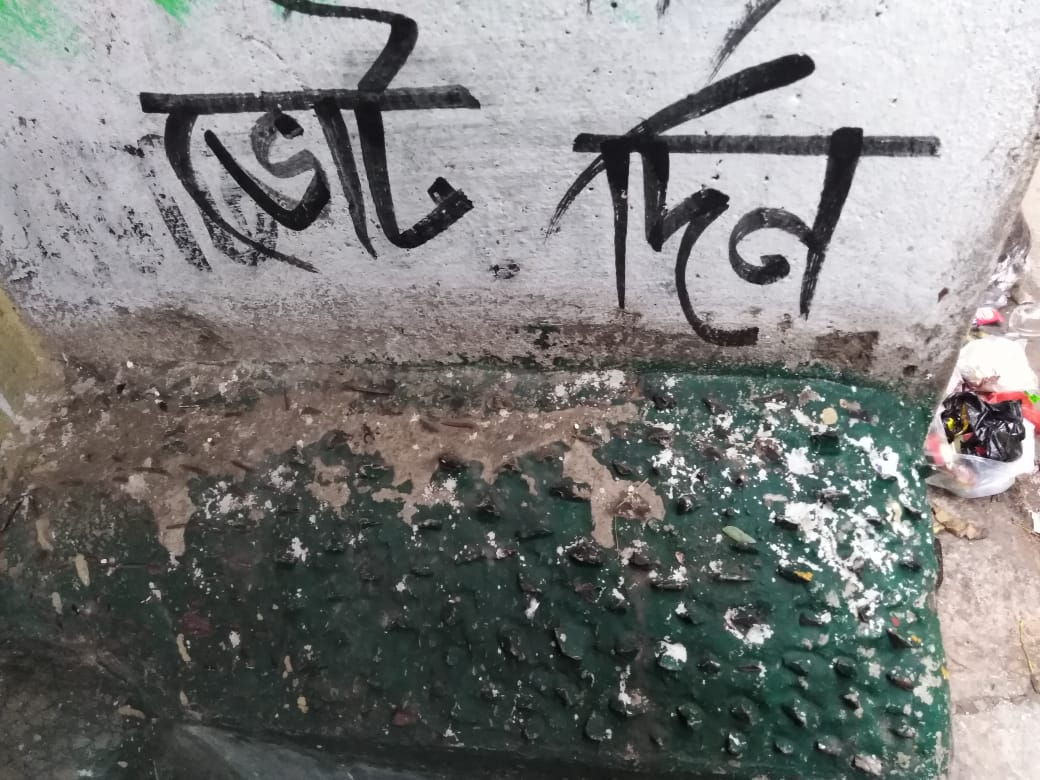 ভোট দিন